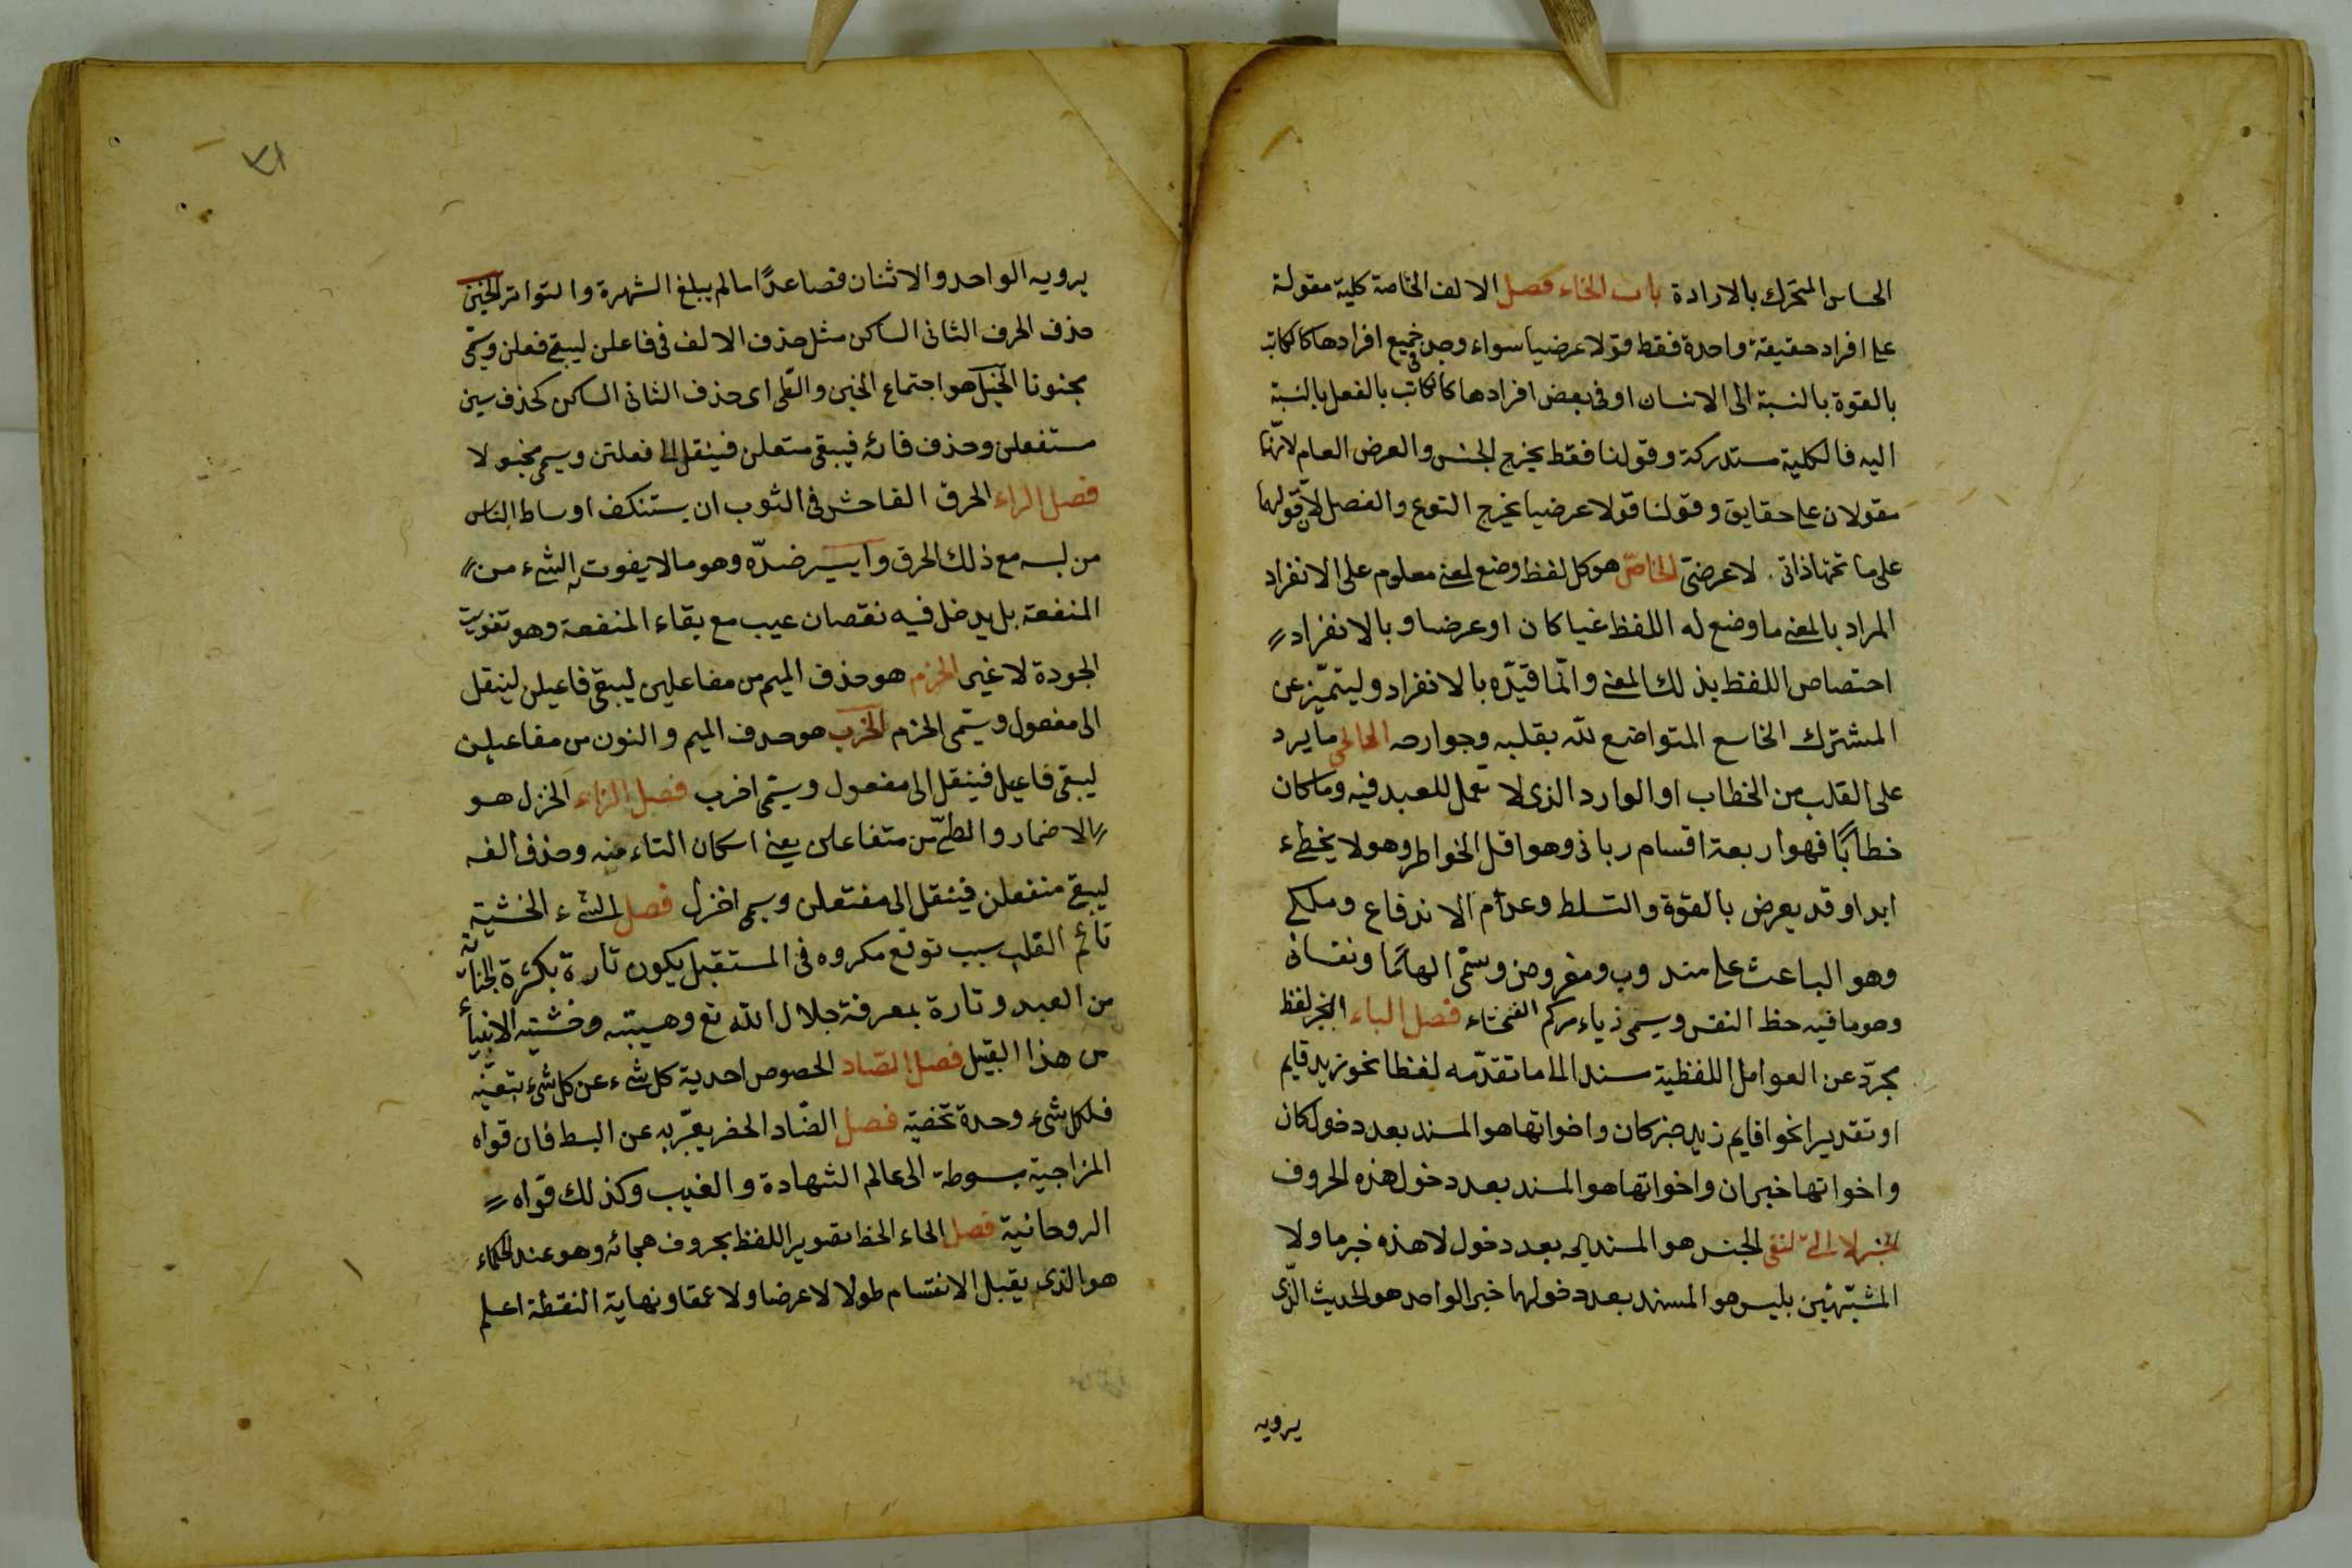 الحساس المتحرك بالارادة باب الخاء فصل الالف الخاصة كلية مقولة
على افراد حقيقة واحدة فقط قولا عرضيا سواء وجد في جميع افرادها كالكاتب
بالقوة بالنسبة الى الانسان او في بعض افرادها كالكاتب بالفعل بالنسبة
اليه فالكلية مستدركة وقولنا فقط يخرج الجنس والعرض العام لانهما
مقولان على حقايق وقولنا قولا عرضيا يخرج النوع والفصل لان قولهما
على ما تحتها ذاتى لا عرضىّ الخاصّ هو كل لفظ وضع لمعنى معلوم على الانفراد
المراد بالمعنى ما وضع له اللفظ عينا كان او عرضا وبالانفراد
اختصاص اللفظ بذلك المعنى وانّما قيّده بالانفراد وليتميّز عن
المشترك الخاسع المتواضع لله بقلبه وجوارحه الخاطر ما يرد
على القلب من الخطاب او الوارد الذى لا تعمل للعبد فيه وما كان
خطابًا فهو اربعة اقسام ربانى وهو اقل الخواطر وهو لا يخطىء
ابدا وقد يعرض بالقوة والتسلط وعدم الاندفاع وملكى
وهو الباعث على مندوب ومفروض وسمّى الهامًا ونفسانى
وهو ما فيه حظ النفس ويسمى فصل الباء الخبر لفظ
مجرّد عن العوامل اللفظية سند الى ما تقدّمه لفظا نحو زيد قايم
او تقديرا نحو اقايم زيد خبر كان واخواتها هو المسند بعد دخول كان
واخواتها خبر ان واخواتها هو المسند بعد دخول هذه الحروف
خبر لا التى لنفى الجنس هو المسند اليه بعد دخول لا هذه خبر ما ولا
المشبّهتين بليس هو المسند بعد دخولهما خبر الواحد هو الحديث الذى
يرويه
١٧
يرويه الواحد والاثنان فصاعدًا ما لم يبلغ الشهرة والتواتر الخبن
حذف الحرف الثانى الساكن مثل حذف الالف فى فاعلن ليبقى فعلن ويسمّى
مخبونا الخبل هو اجتماع الخبن والطى اى حذف الثانى الساكن كحذف سين
مستفعلن وحذف فائه فيبقى متعلن فينقل الى فعلتن ويسمى مخبولا
فصل الراء الخرق الفاحش فى الثوب ان يستنكف اوساط الناس
من لبسه مع ذلك الخرق واليسير ضدّه وهو ما لا يفوت به الشىء من
المنفعة بل يدخل فيه نقصان عيب مع بقاء المنفعة وهو تفويت
الجودة لا غير الخرم هو حذف الميم من مفاعيلن ليبقى فاعيلن لينقل
الى مفعول ويسمّى الخرم الخرب هو حدف الميم والنون من مفاعيلن
ليبقى فاعيل فينقل الى مفعول ويسمّى اخرب فصل الزاء الخزل هو
الاضمار والطىّ من متفاعلن يعنى اسكان التاء منه وحذف الفه
ليبقى متفعلن فينقل الى مفتعلن ويسمى اخزل فصل الشىء الخشية
تائم القلب بسبب توقع مكروه فى المستقبل يكون تارة بكثرة الجناية
من العبد وتارة بمعرفة جلال الله تع وهيبته وخشية الانبياء
من هذا القبيل فصل الصّاد الخصوص احدية كل شىء عن كل شىء بتعيّنه
فلكل شىء وحدة تخصّه فصل الضّاد الخضر يعبّر به عن البسط فان قواه
المزاجية مبسوطة الى عالم الشهادة والغيب وكذلك قواه
الروحانية فصل الحاء الخط تصوير اللفظ بحروف هجائه وهو عند الحكماء
هو الذى يقبل الانقسام طولا لا عرضا ولا عمقا ونهاية النقطة اعلم